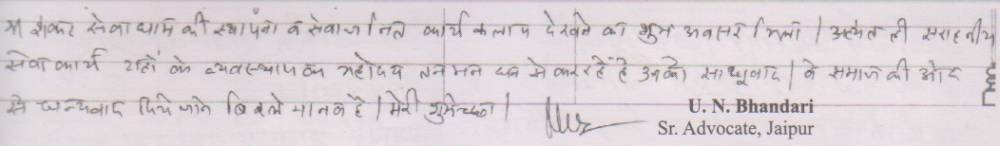 मा शंकर सेवा धाम की स्थापना व सेवा जनित कार्य कलाप देखने का शुभ अवसर मिला | अत्यंत ही सराहनीय
सेवा कार्य यहाँ के व्यवस्थापक महोदय तन मन धन से कर रहें है उनको साधूवाद | वे समाज की ओर
से धन्यवाद दिये जाने के मानक है | मेरी शुभेच्छा |
U. N. Bhandari
Sr. Advocate, Jaipur